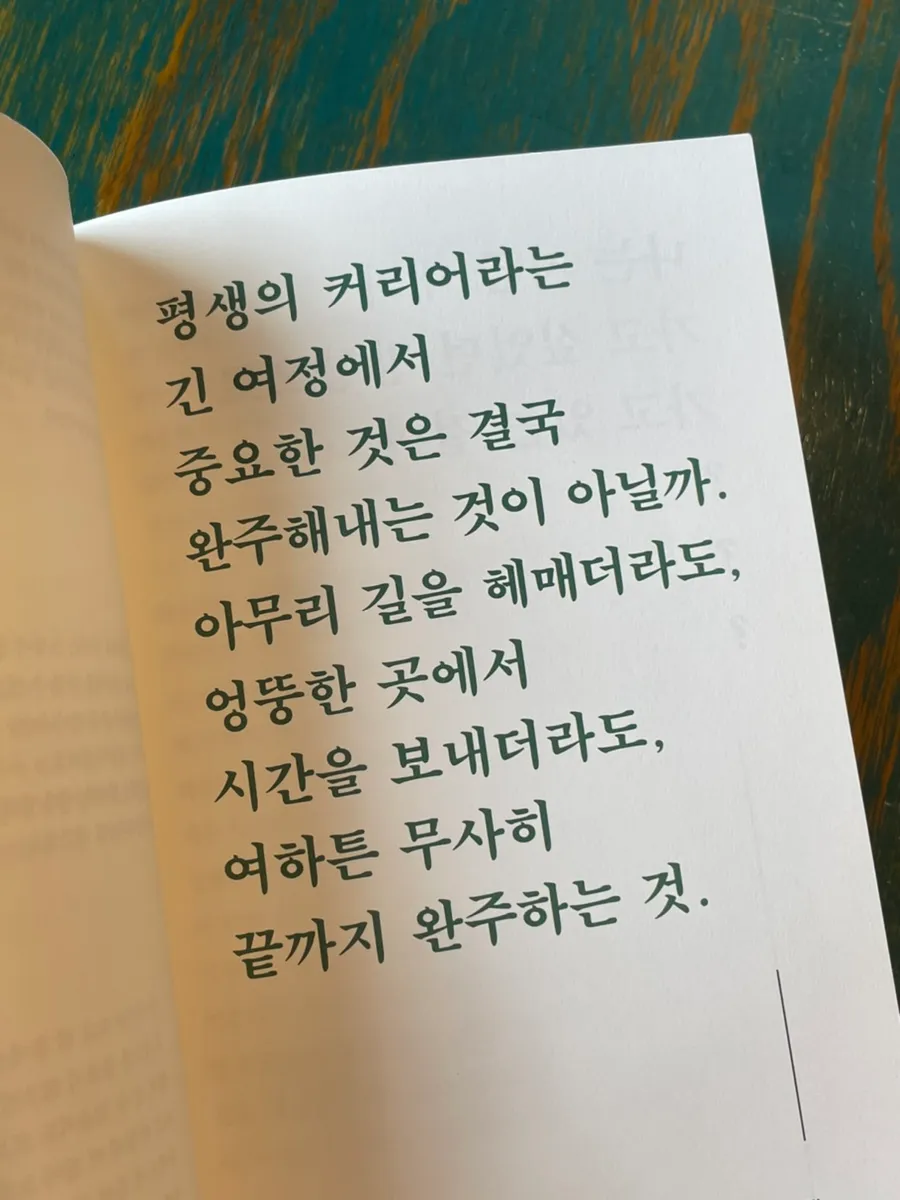 평생의 커리어라는
긴 여정에서
중요한 것은 결국
완주해내는 것이 아닐까.
아무리 길을 헤매더라도,
엉뚱한 곳에서
시간을 보내더라도,
여하튼 무사히
끝까지 완주하는 것.